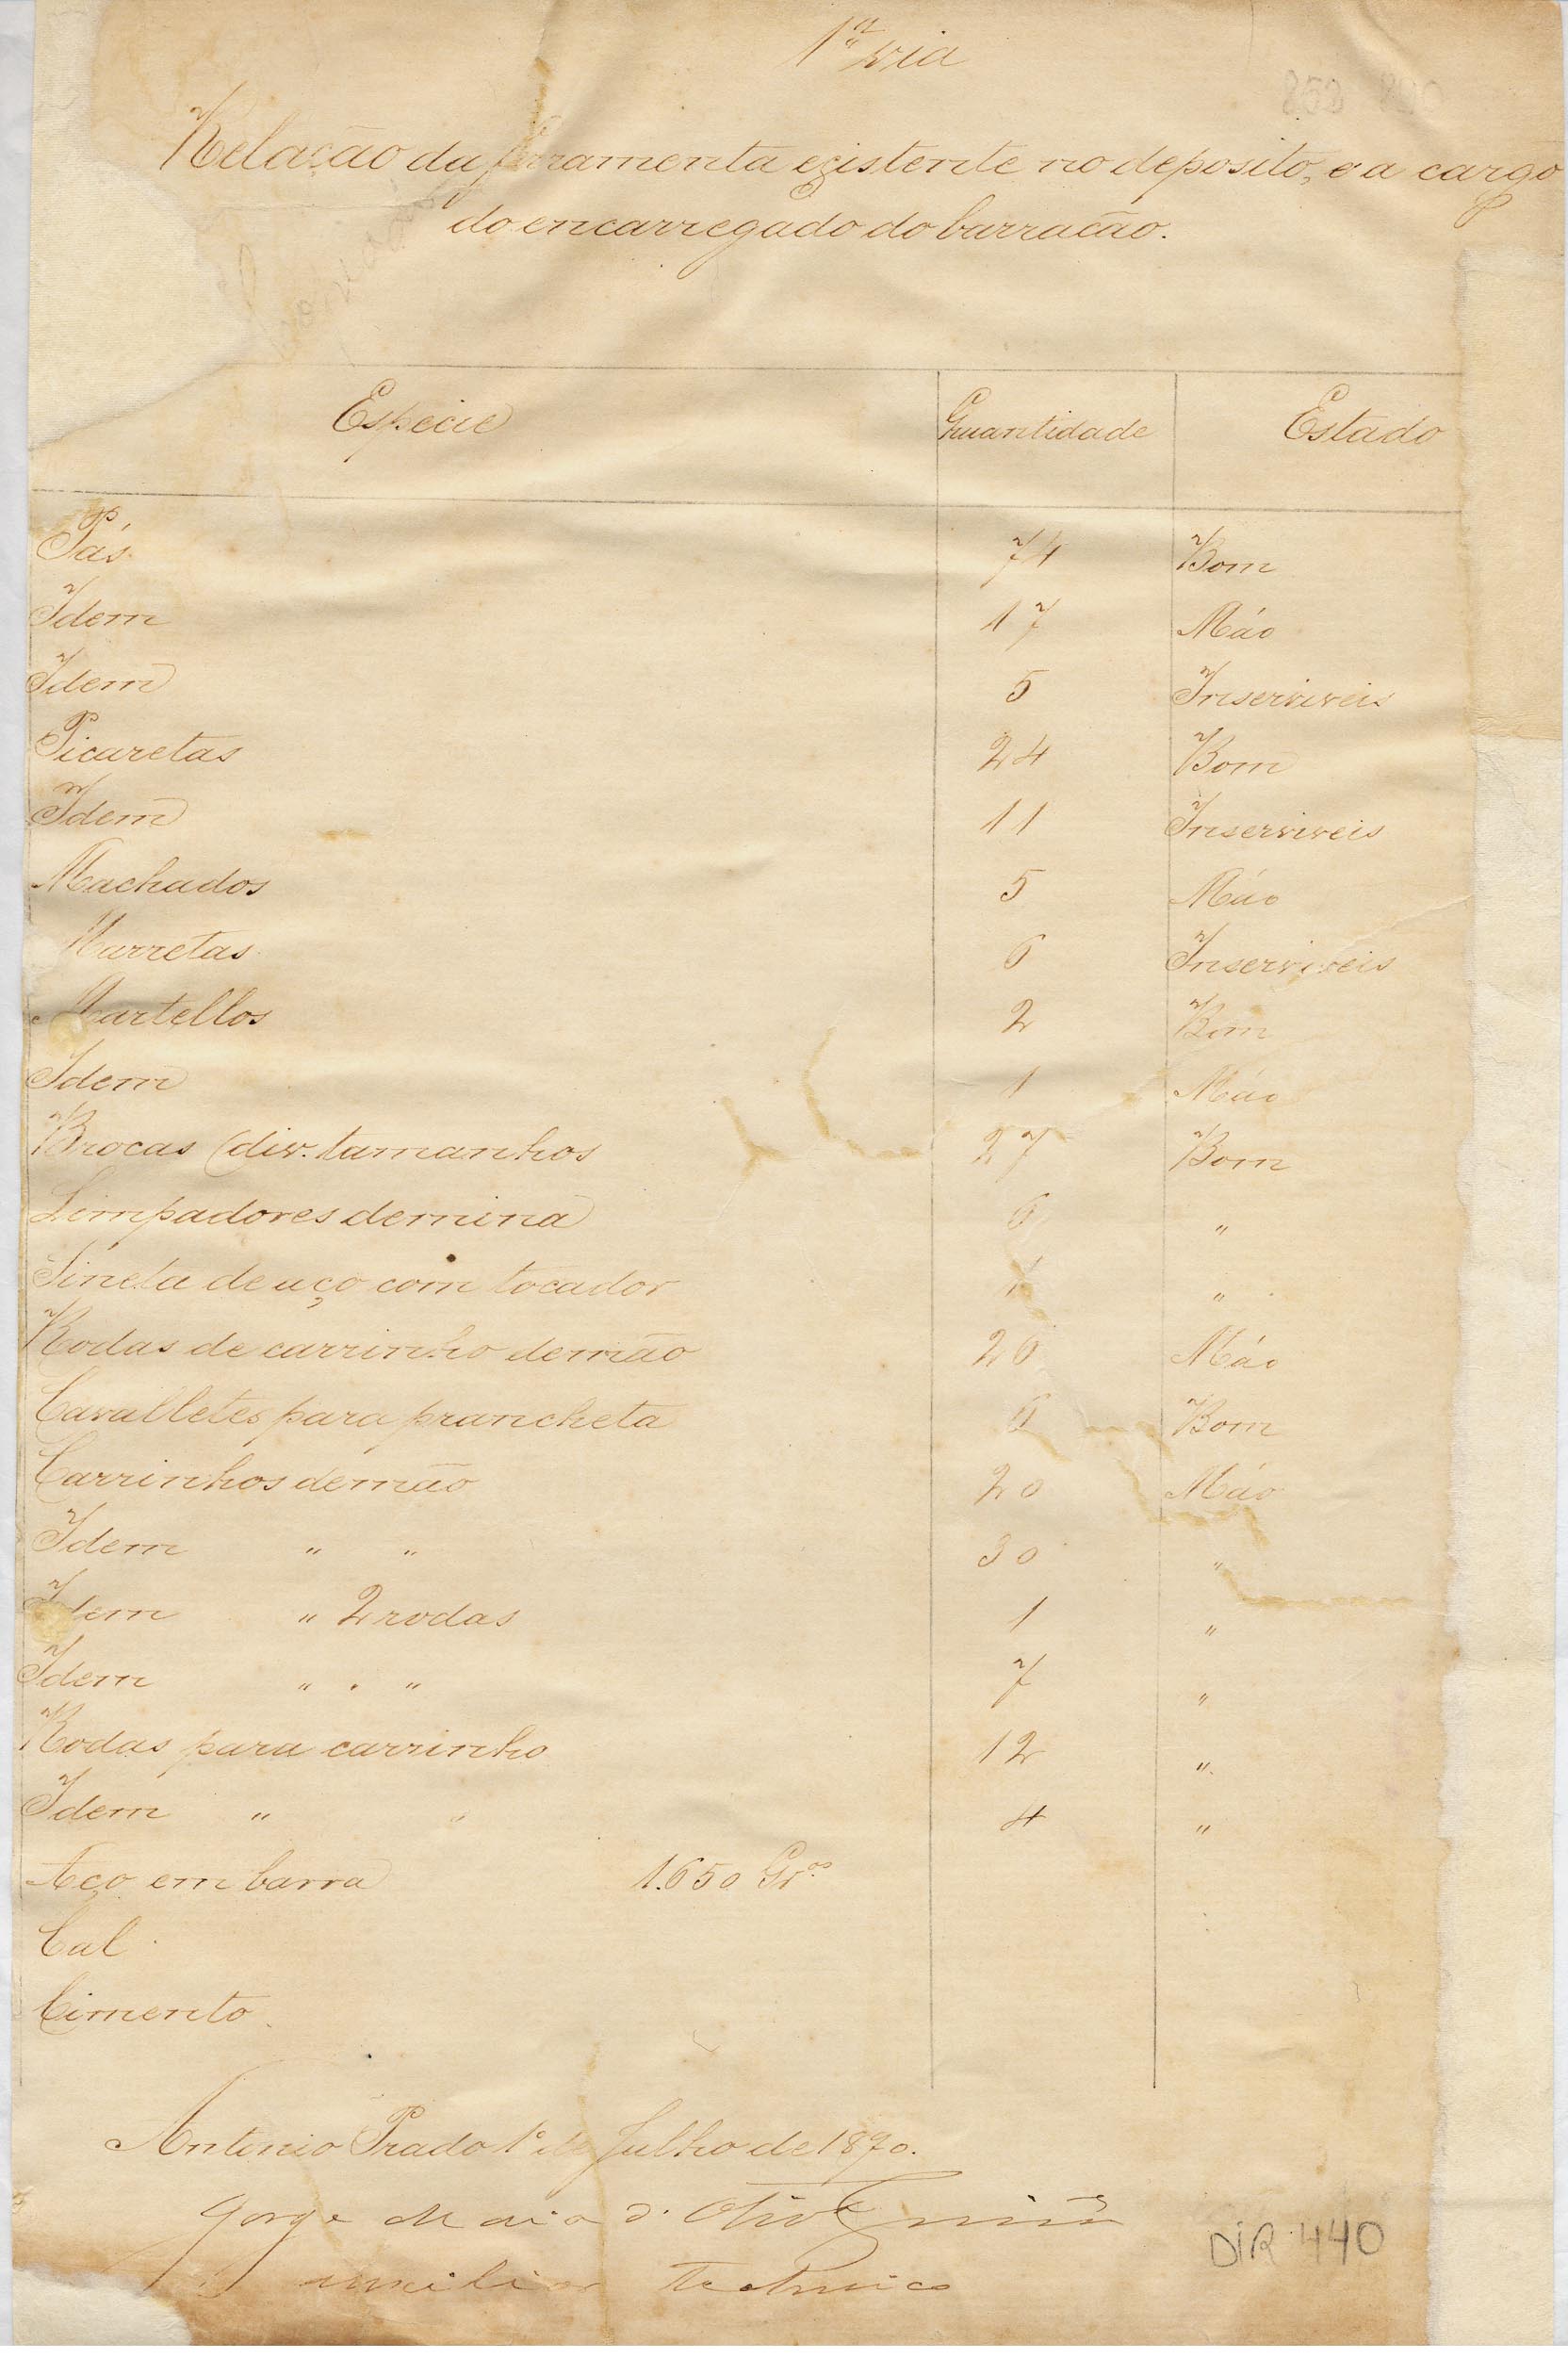 1ª via
Relação da ferramenta existente no deposito, e a cargo
do encarregado do barracão.
Especie Quantidade Estado
Pás 74 Bom
Idem 17 Máo
Idem 5 Inserviveis
Picaretas 24 Bom
Idem 11 Inserviveis
Machados 5 Máo
Marretas 6 Inserviveis
Martellos 2 Bom
Idem 1 Máo
Brocas (div. tamanhos 27 Bom
Limpadores de mina 6 "
Sineta de aço com tocador 1 "
Rodas de carrinho de mão 26 Máo
Cavalletes para prancheta 6 Bom
Carrinhos de mão 20 Máo
Idem " " 30 "
Idem " 2 rodas 1 "
Idem " . " 7 "
Rodas para carrinho 12 "
Idem " " 4 "
Aço em barra 1.650 Grºˢ
Cal
Cimento
Antonio Prado 1º de Julho de 1890.
Jorge Maia d'
auxiliar technico
DIR 440